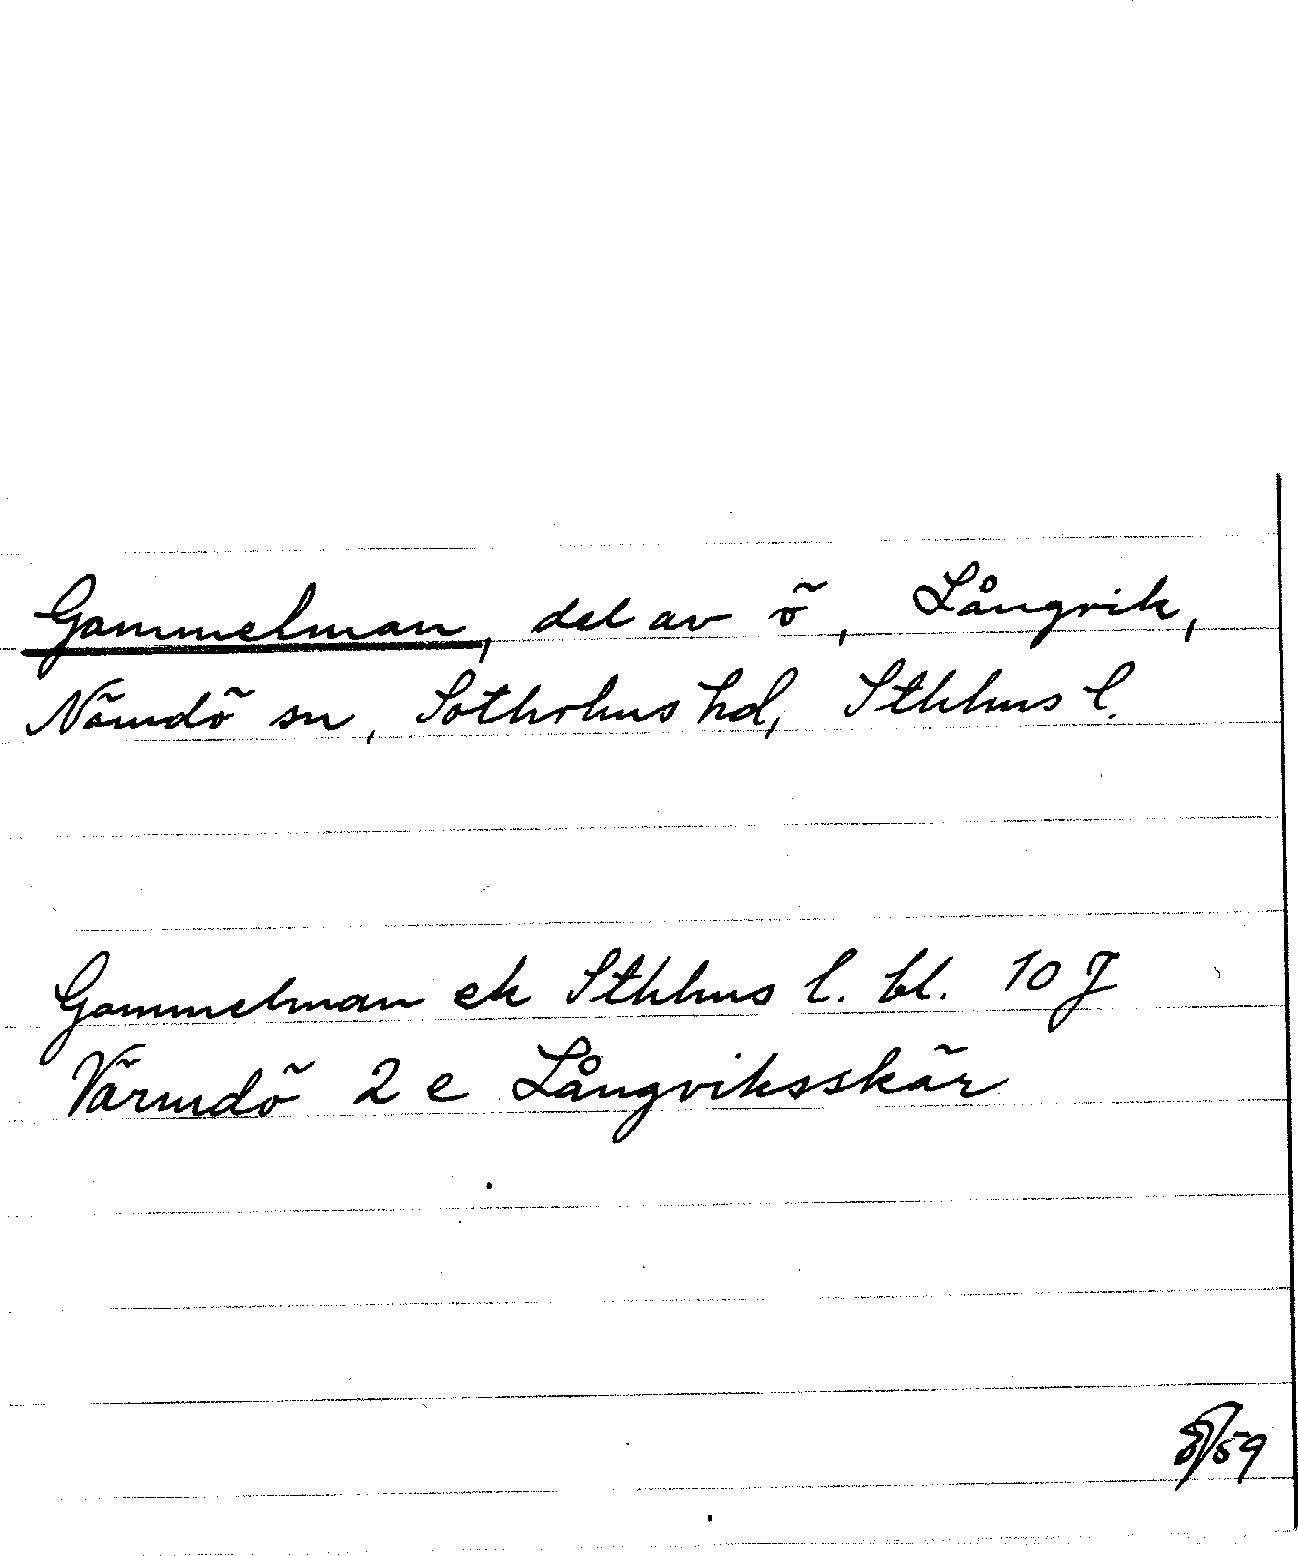 Gammelman, del av ö, Långvik,
Nämdö sn, Sotholms hd, Sthlms l.
Gammelman ek Sthlms l. bl. 10 J
Värmdö 2 e Långviksskär
/59